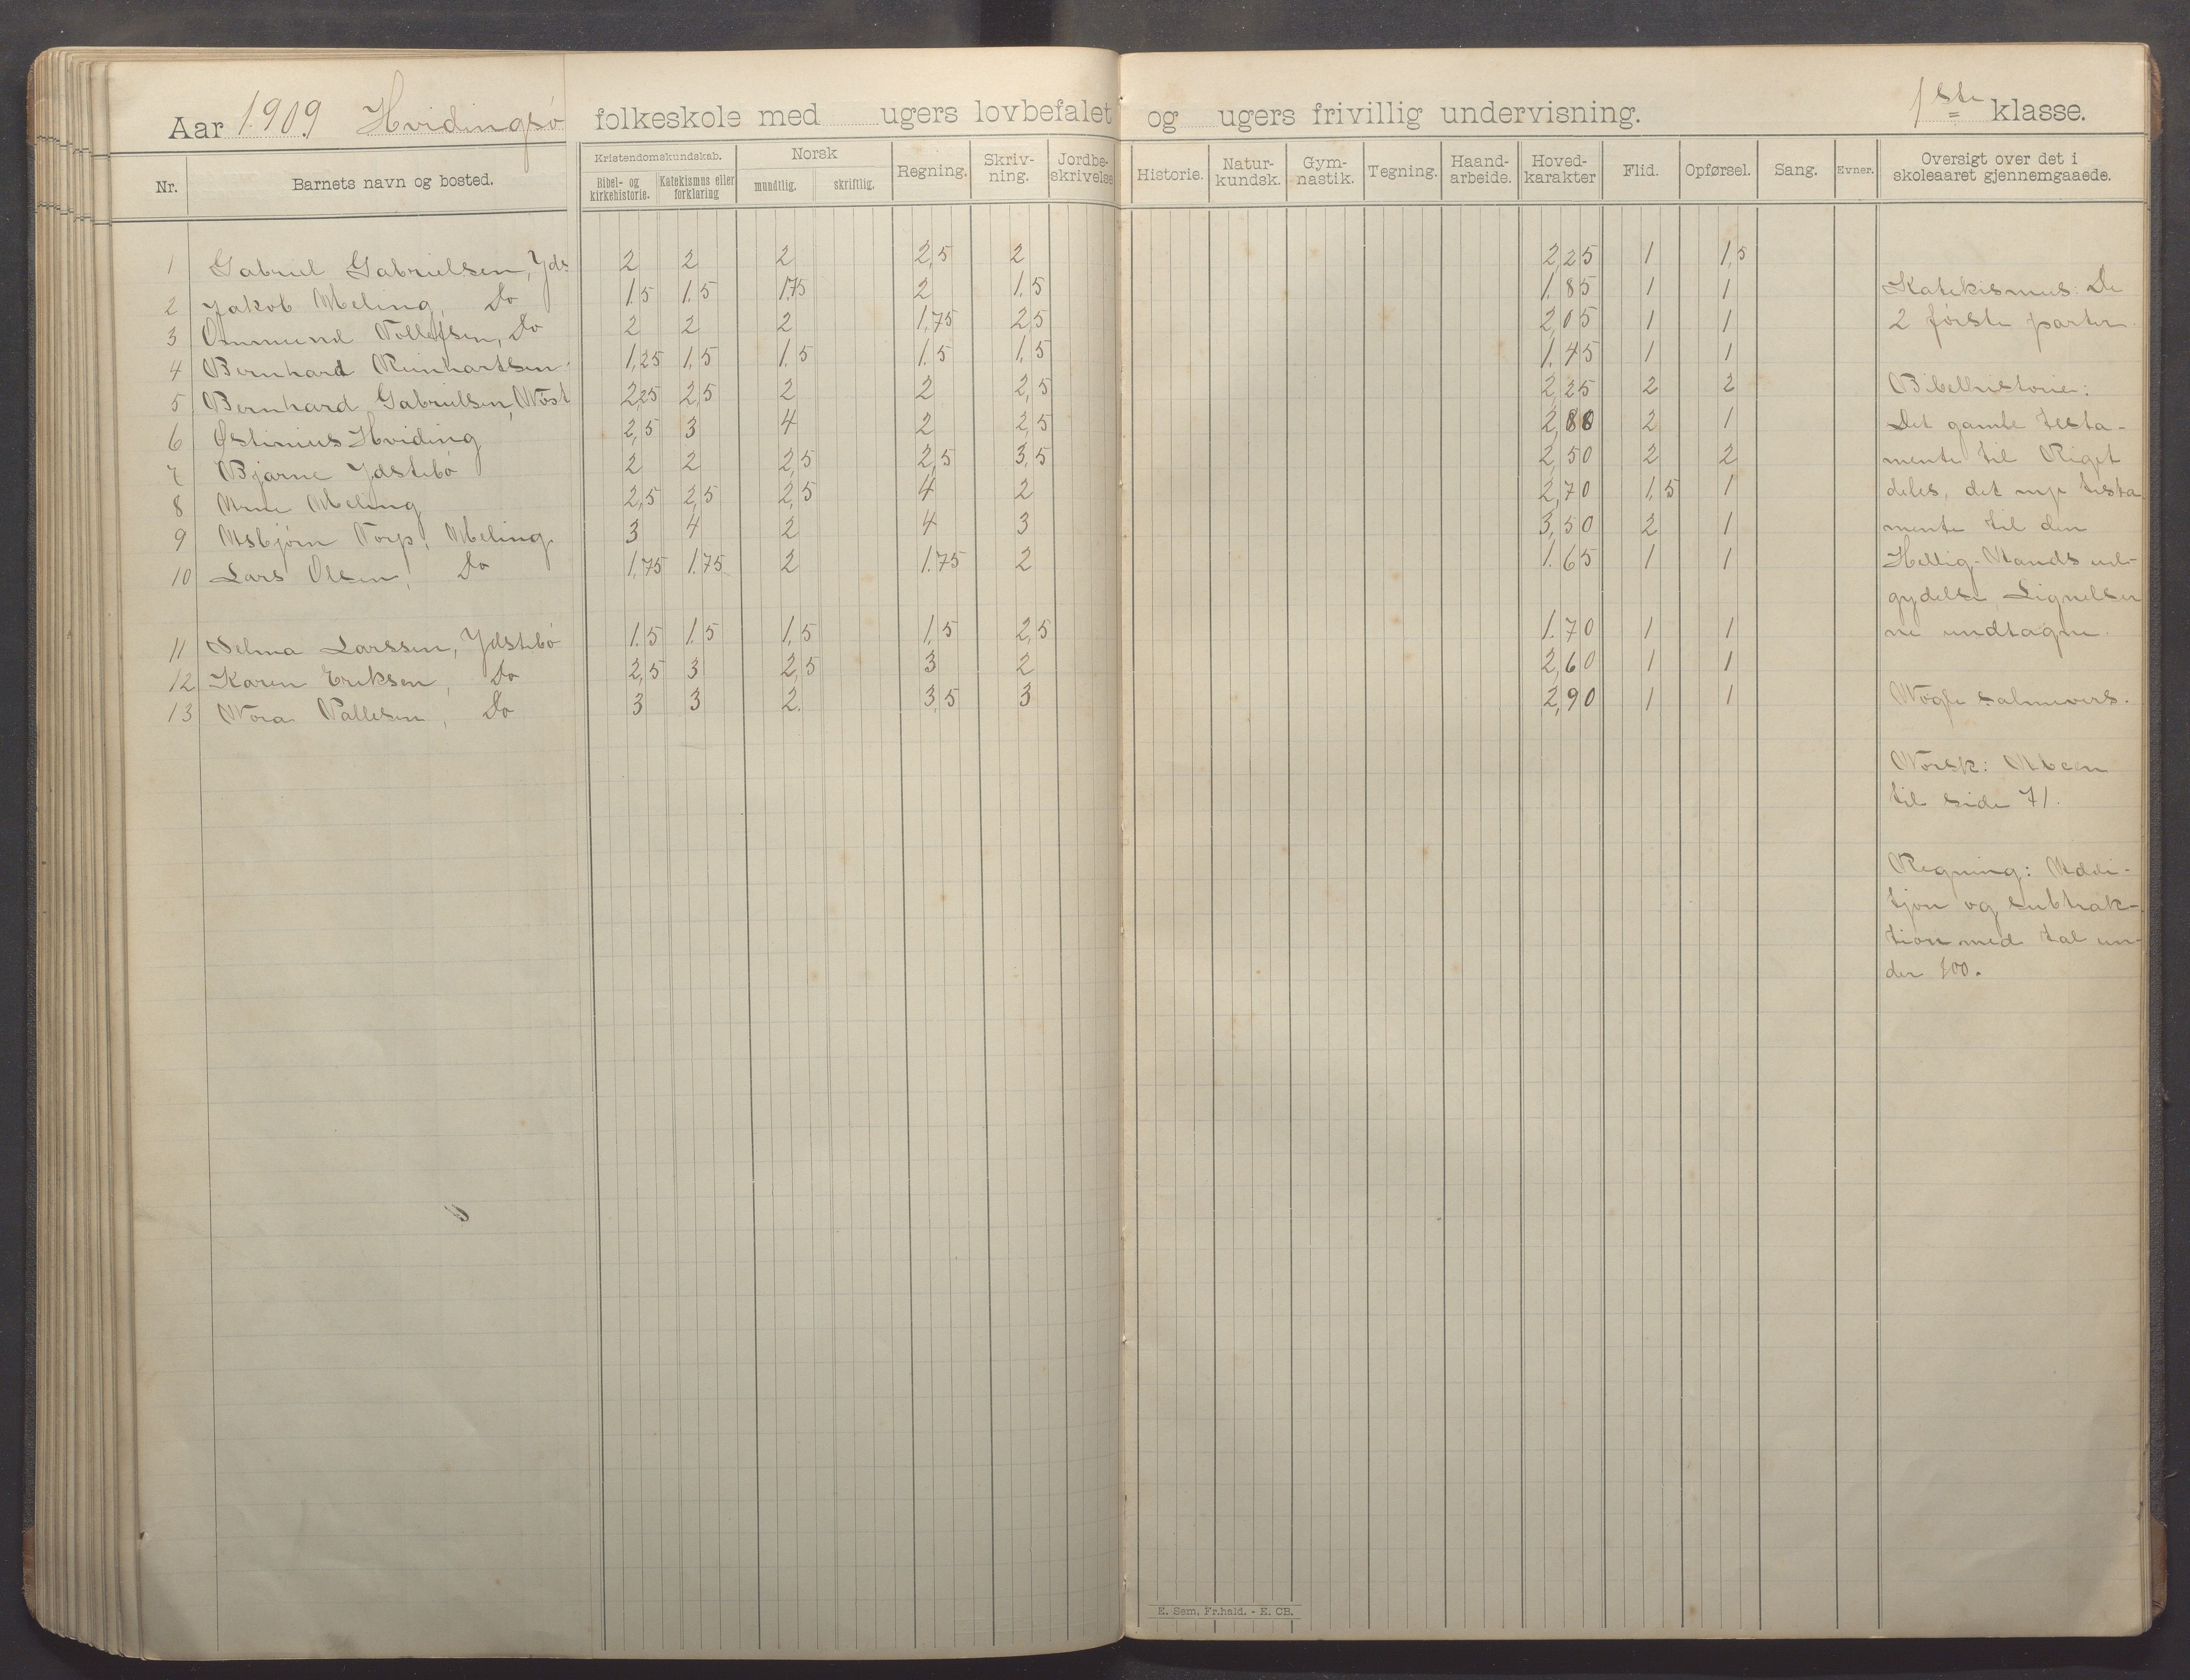 Aar 1909 Hvidingsø folkeskole med ugers lovbefalet og ugers frivillig undervisning. 1ste klasse.
Nr. Barnets navn og bosted. Kristendomskundskab. Bibel- og kirkehistorie. Katekismus eller forklaring Norsk mundtlig. skriftlig. Regning. Skriv-ning. Jordbe-skrivelse Historie. Natur-kundsk. Gym-nastik. Tegning. Haand-arbeide. Hoved-karakter Flid. Opførsel. Sang. Evner. Oversigt over det i skoleaaret gjennemgaaede.
1 Gabriel Gabrielsen, Yds 2 2 2 2,5 2 2,25 1 1,5
2 Jakob Meling, Do 1.5 1.5 1.75 2 1.5 1.85 1 1
3 Ommund Tollefsen, Do 2 2 2 1,75 2,5 2,05 1 1
4 Bernhard Reinhartsen 1,25 1,5 1.5 1.5 1,5 1.45 1 1
5 Bernhard Gabrielsen, Nøst 2,25 2,5 2 2 2,5 2,25 2 2
6 Østinius Hviding 2,5 3 4 2 2,5 2,88 2 1
7 Bjarne Ydstebø 2 2 2,5 2,5 3,5 2,50 2 2
8 Arne Meling 2,5 2,5 2,5 4 2 2,70 1,5 1
9 Asbjørn Torp, Meling 3 4 2 4 3 3,50 2 1
10 Lars Olsen, Do 1,75 1.75 2 1.75 2 1.65 1 1
11 Selma Larssen, Ydstebø 1.5 1.5 1,5 1,5 2,5 1.70 1 1
12 Karen Eriksen, Do 2,5 3 2,5 3 2 2,60 1 1
13 Nora Pallesen, Do 3 3 2. 3,5 3 2,90 1 1
Katekismus: De
2 første parter.
Bibelhistorie:
Det gamle testa-
mente til Riget
deles, det nye testa
mente til den
Hellig-Aands ud-
gydelse, Lignelser
ne undtagne.
Nogle salmevers.
Norsk: Abcen
til side 71.
Regning: Addi-
tjon og subtrak-
tion med tal un-
der 100.
E. Sem, Fr.hald. - E. CB.